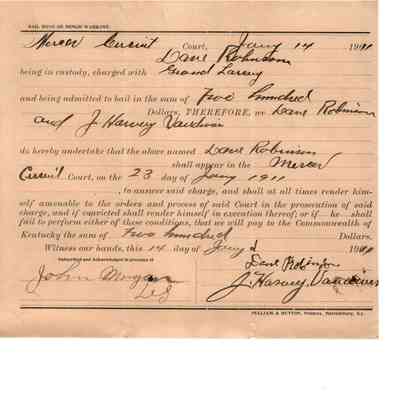 BAIL BOND OR BENCH WARRANT.
Mercer Circuit Court, Jany 14 1911
Dave Robinson
being in custody, charged with Grand Larceny
and being admitted to bail in the sum of Two hundred
Dollars, THEREFORE, we Dave Robinson
and J Harvey Vandiver
do hereby undertake that the above named Dave Robinson
shall appear in the Mercer
Circuit Court, on the 23 day of Jany 1911
, to answer said charge, and shall at all times render him-
self amenable to the orders and process of said Court in the prosecution of said
charge, and if convicted shall render himself in execution thereof; or if he shall
fail to perform either of these conditions, that we will pay to the Commonwealth of
Kentucky the sum of Two hundred Dollars.
Witness our hands, this 14 day of Jany 1911
Subscribed and Acknowledged in presence of
Dave Robinson
John Morgan J. Harvey Vandiver
PULLIAM & HUTTON, Printers, Harrodsburg, Ky.